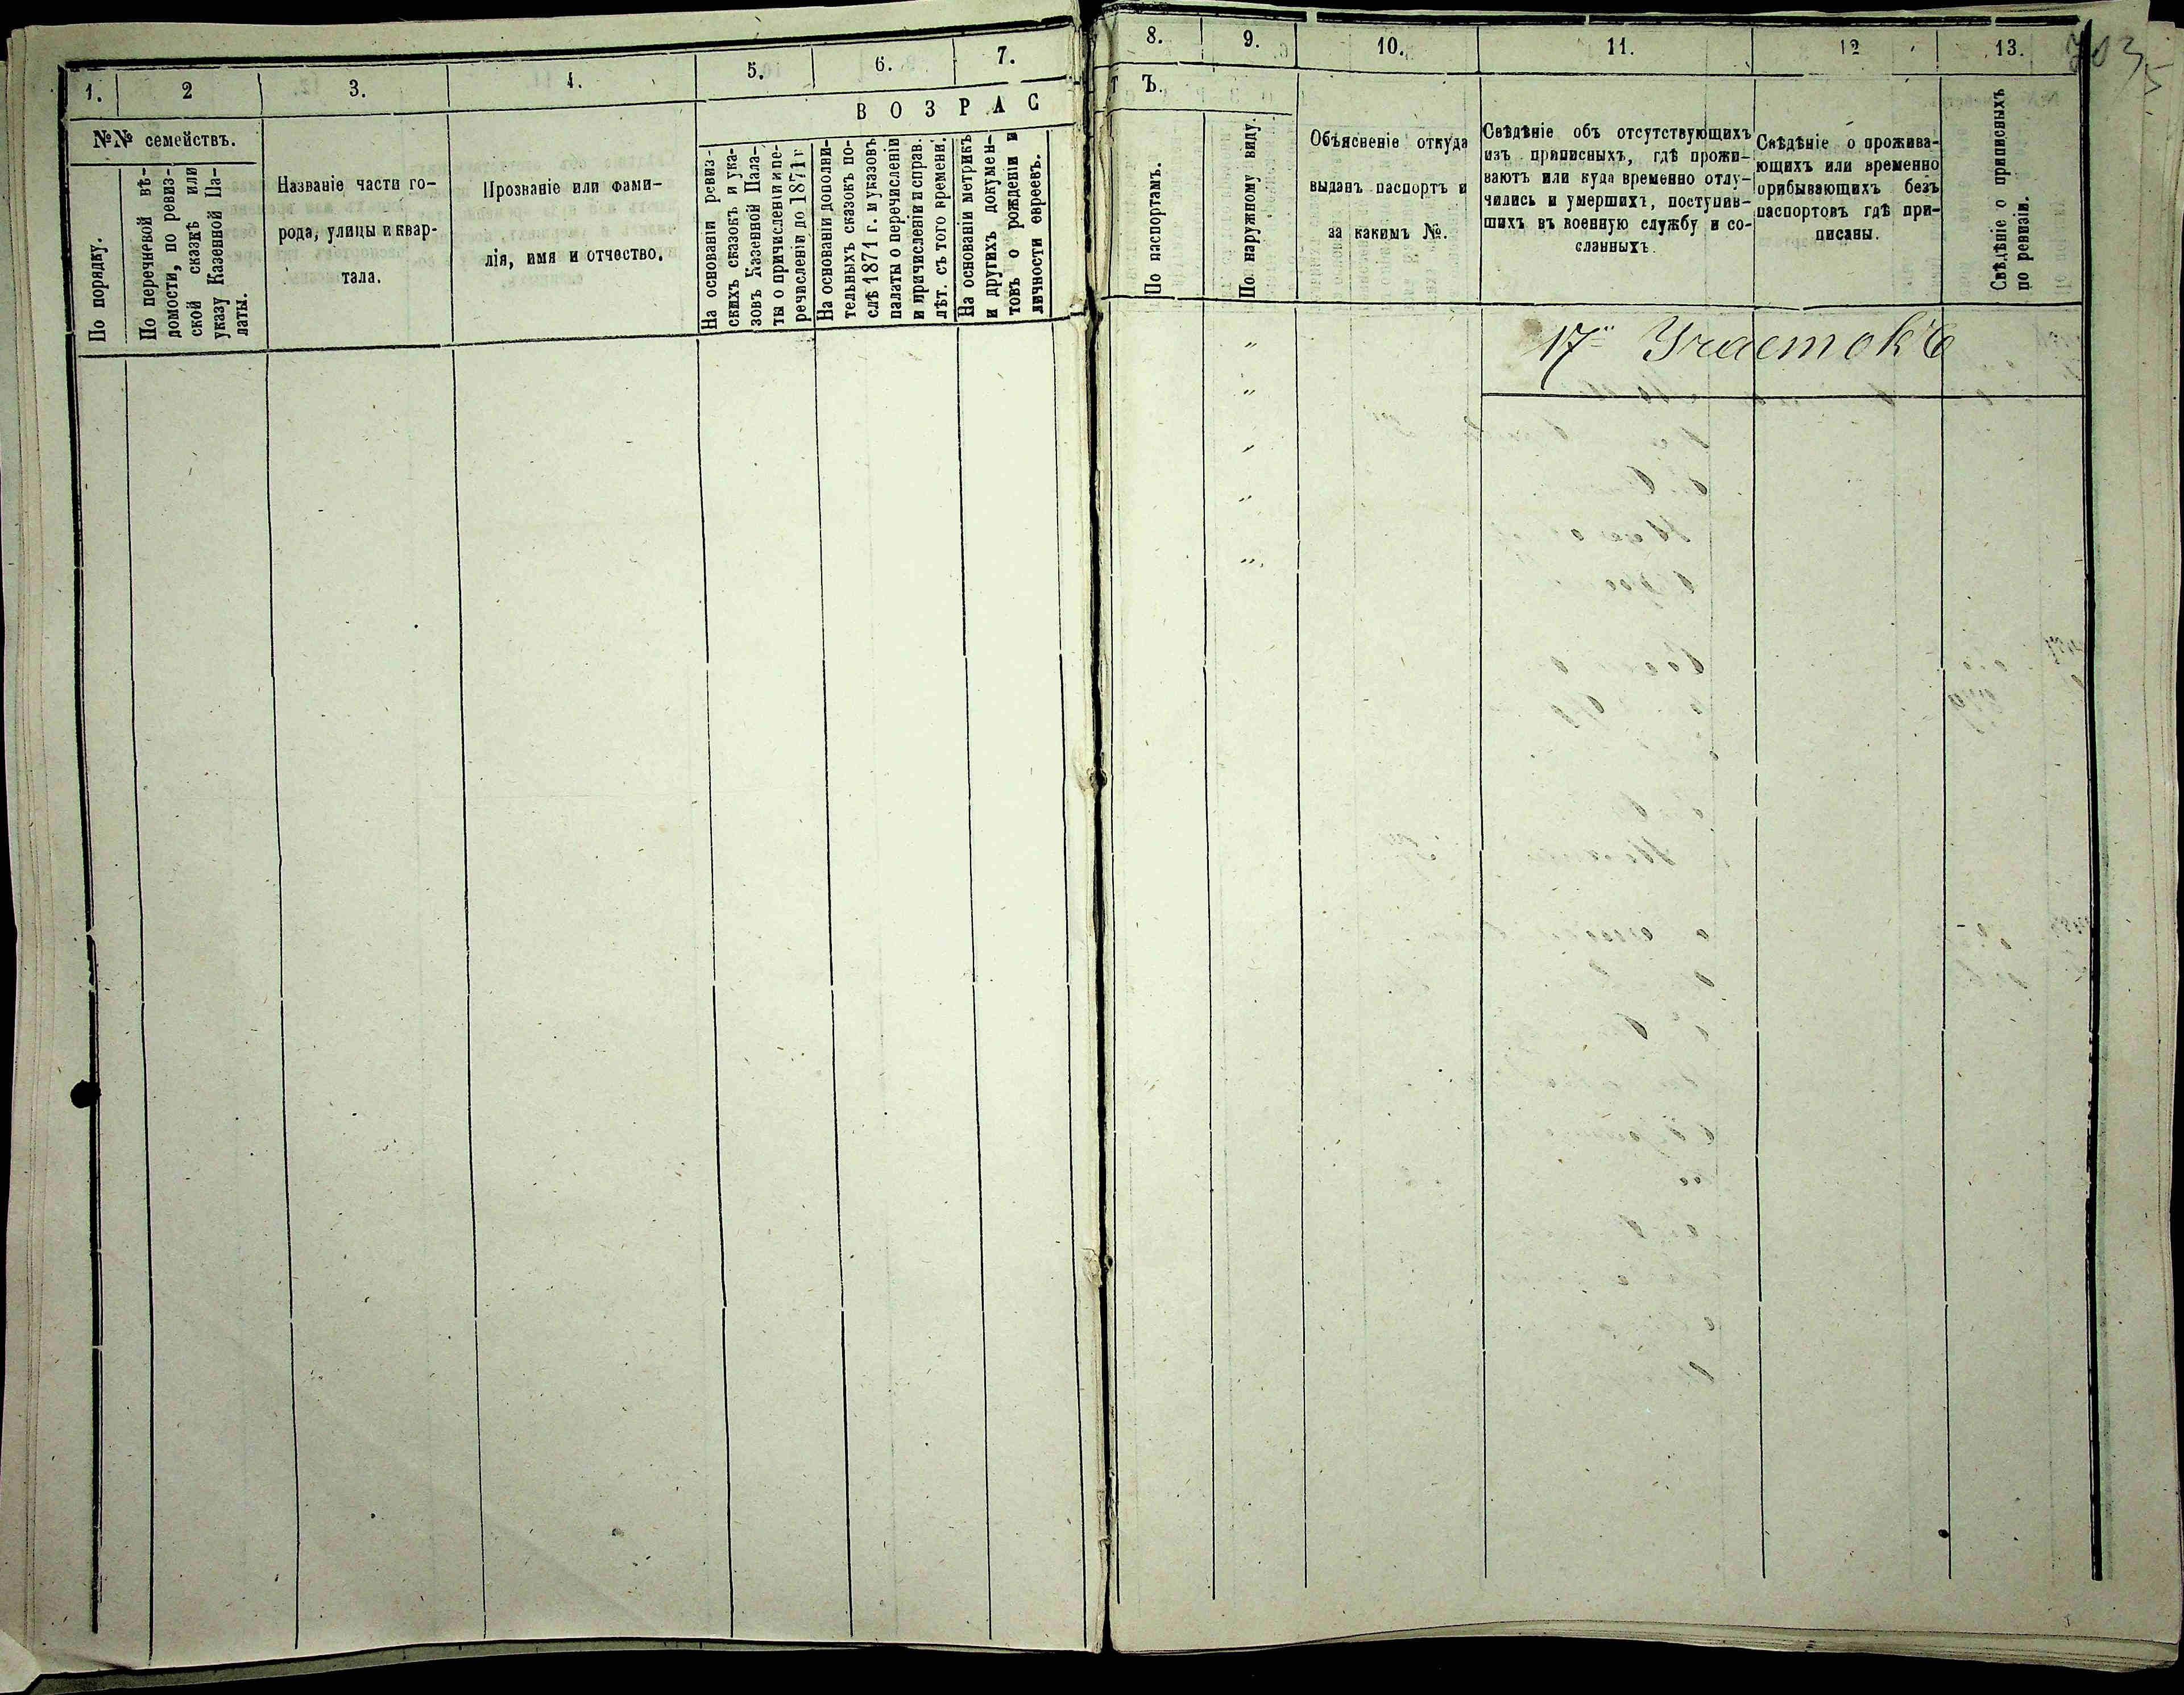 1.
2
3.
4.
5.
6.
7.
№№ семействъ.
По порядку.
По перечневой вѣ-
домости, по ревиз-
ской сказкѣ или
указу Казенной Па-
латы.
Названіе части го-
рода, улицы и квар-
тала.
Прозваніе или фами-
лія, имя и отчество.
ВОЗРАС
На основаніи ревиз-
скихъ сказокъ и ука-
зовъ Казенной Пала-
ты о причисленіи и пе-
речисленіи до 1871 г.
На основаніи дополни-
тельныхъ сказокъ по-
слѣ 1871 г. и указовъ
палаты о перечисленіи
и причисленіи и справ.
лѣт. съ того времени.
На основаніи метрикъ
и другихъ докумен-
товъ о рожденіи и
личности евреевъ.
8.
9.
10.
11.
12
13.
ТЪ.
По паспортамъ.
По наружному виду.
Объясненіе откуда
выданъ паспортъ и
за какимъ №.
Свѣдѣніе объ отсутствующихъ
изъ приписныхъ, гдѣ прожи-
ваютъ или куда временно отлу-
чились и умершихъ, поступив-
шихъ въ военную службу и со-
сланныхъ.
Свѣдѣніе о прожива-
ющихъ или временно
прибывающихъ безъ
паспортовъ гдѣ при-
писаны.
Свѣдѣніе о приписныхъ
по ревизіи.
17й Участокъ
"
"
"
"
"